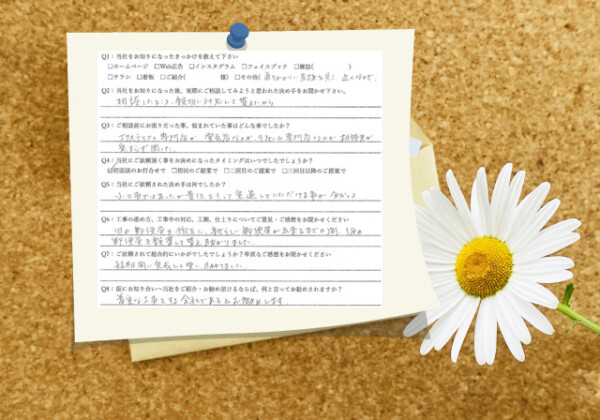 Q1：当社をお知りになったきっかけを教えて下さい
□ホームページ □Web広告 □インスタグラム □フェイスブック □雑誌( )
□チラシ □看板 □ご紹介( 様) □その他(
Q2：当社をお知りになった後、実際にご相談してみようと思われた決め手をお聞かせ下さい。
相談したところ、親切に対応して貰えたから
Q3：ご相談前にお困りだった事、悩まれていた事はどんな事でしたか？
エクステリアの専門店か、リフォーム専門店なのか相談先が
決まらず困った。
Q4：当社にご依頼頂く事をお決めになったタイミングはいつでしたでしょうか？
☑初面談のお打合せで □初回のご提案で □二回目のご提案で □三回目以降のご提案で
Q5：当社にご依頼された決め手は何でしたか？
小工事ではあったが責任をもって
Q6：工事の進め方、工事中の対応、工期、仕上りについてご意見・ご感想をお聞かせください
旧の郵便受の撤去し、新らしい郵便受が出来るまでの間、仮の
郵便受を設置して貰え助かりました。
Q7：ご依頼されて総合的にいかがでしたでしょうか？率直なご感想をお聞かせください
短期間に完成して頂き助かりました。
Q8：仮にお知り合いへ当社をご紹介・お勧め頂けるならば、何と言ってお勧めされますか？
着実な工事をする会社であるとお勧めします。